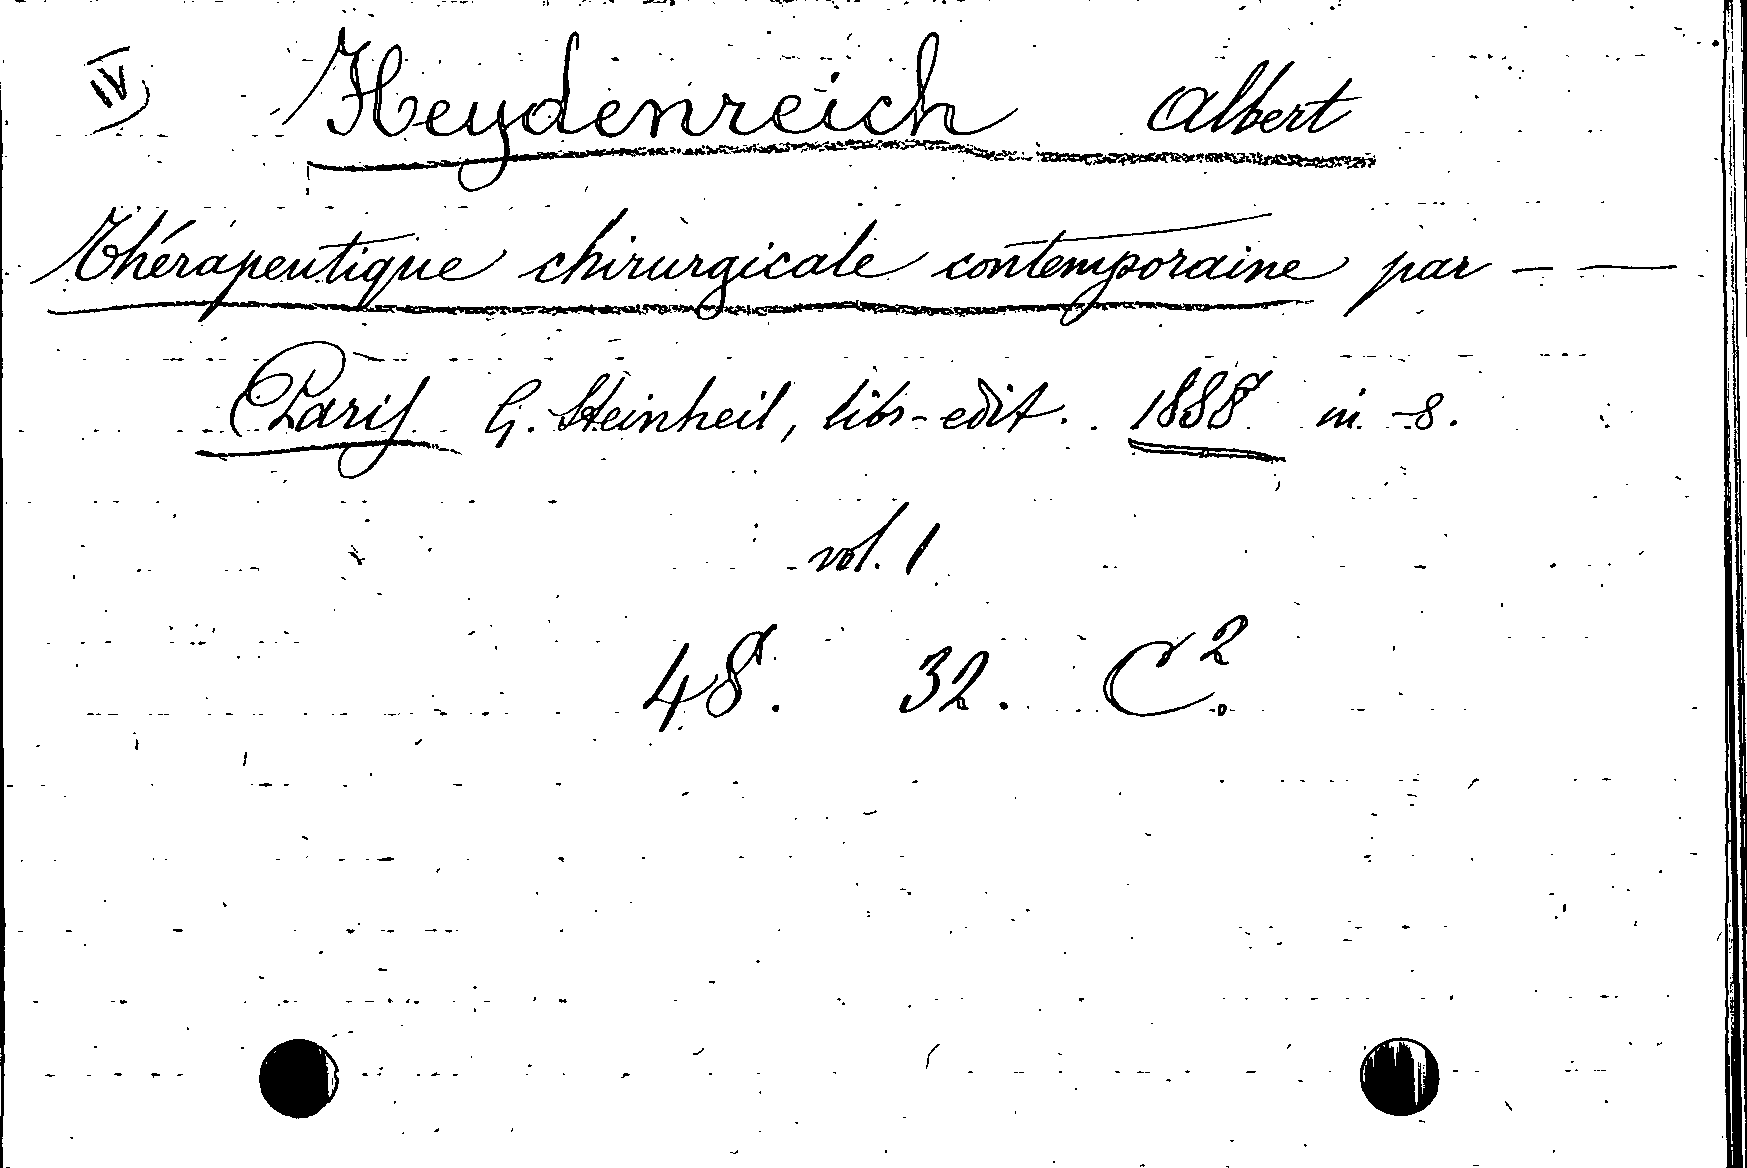 IV Heydenreich Albert
Thérapeutique chirurgicale contemporaine par — —
Paris G. Steinheil, libr-edit. 1888 in-8.
vol. 1
48. 32. C².